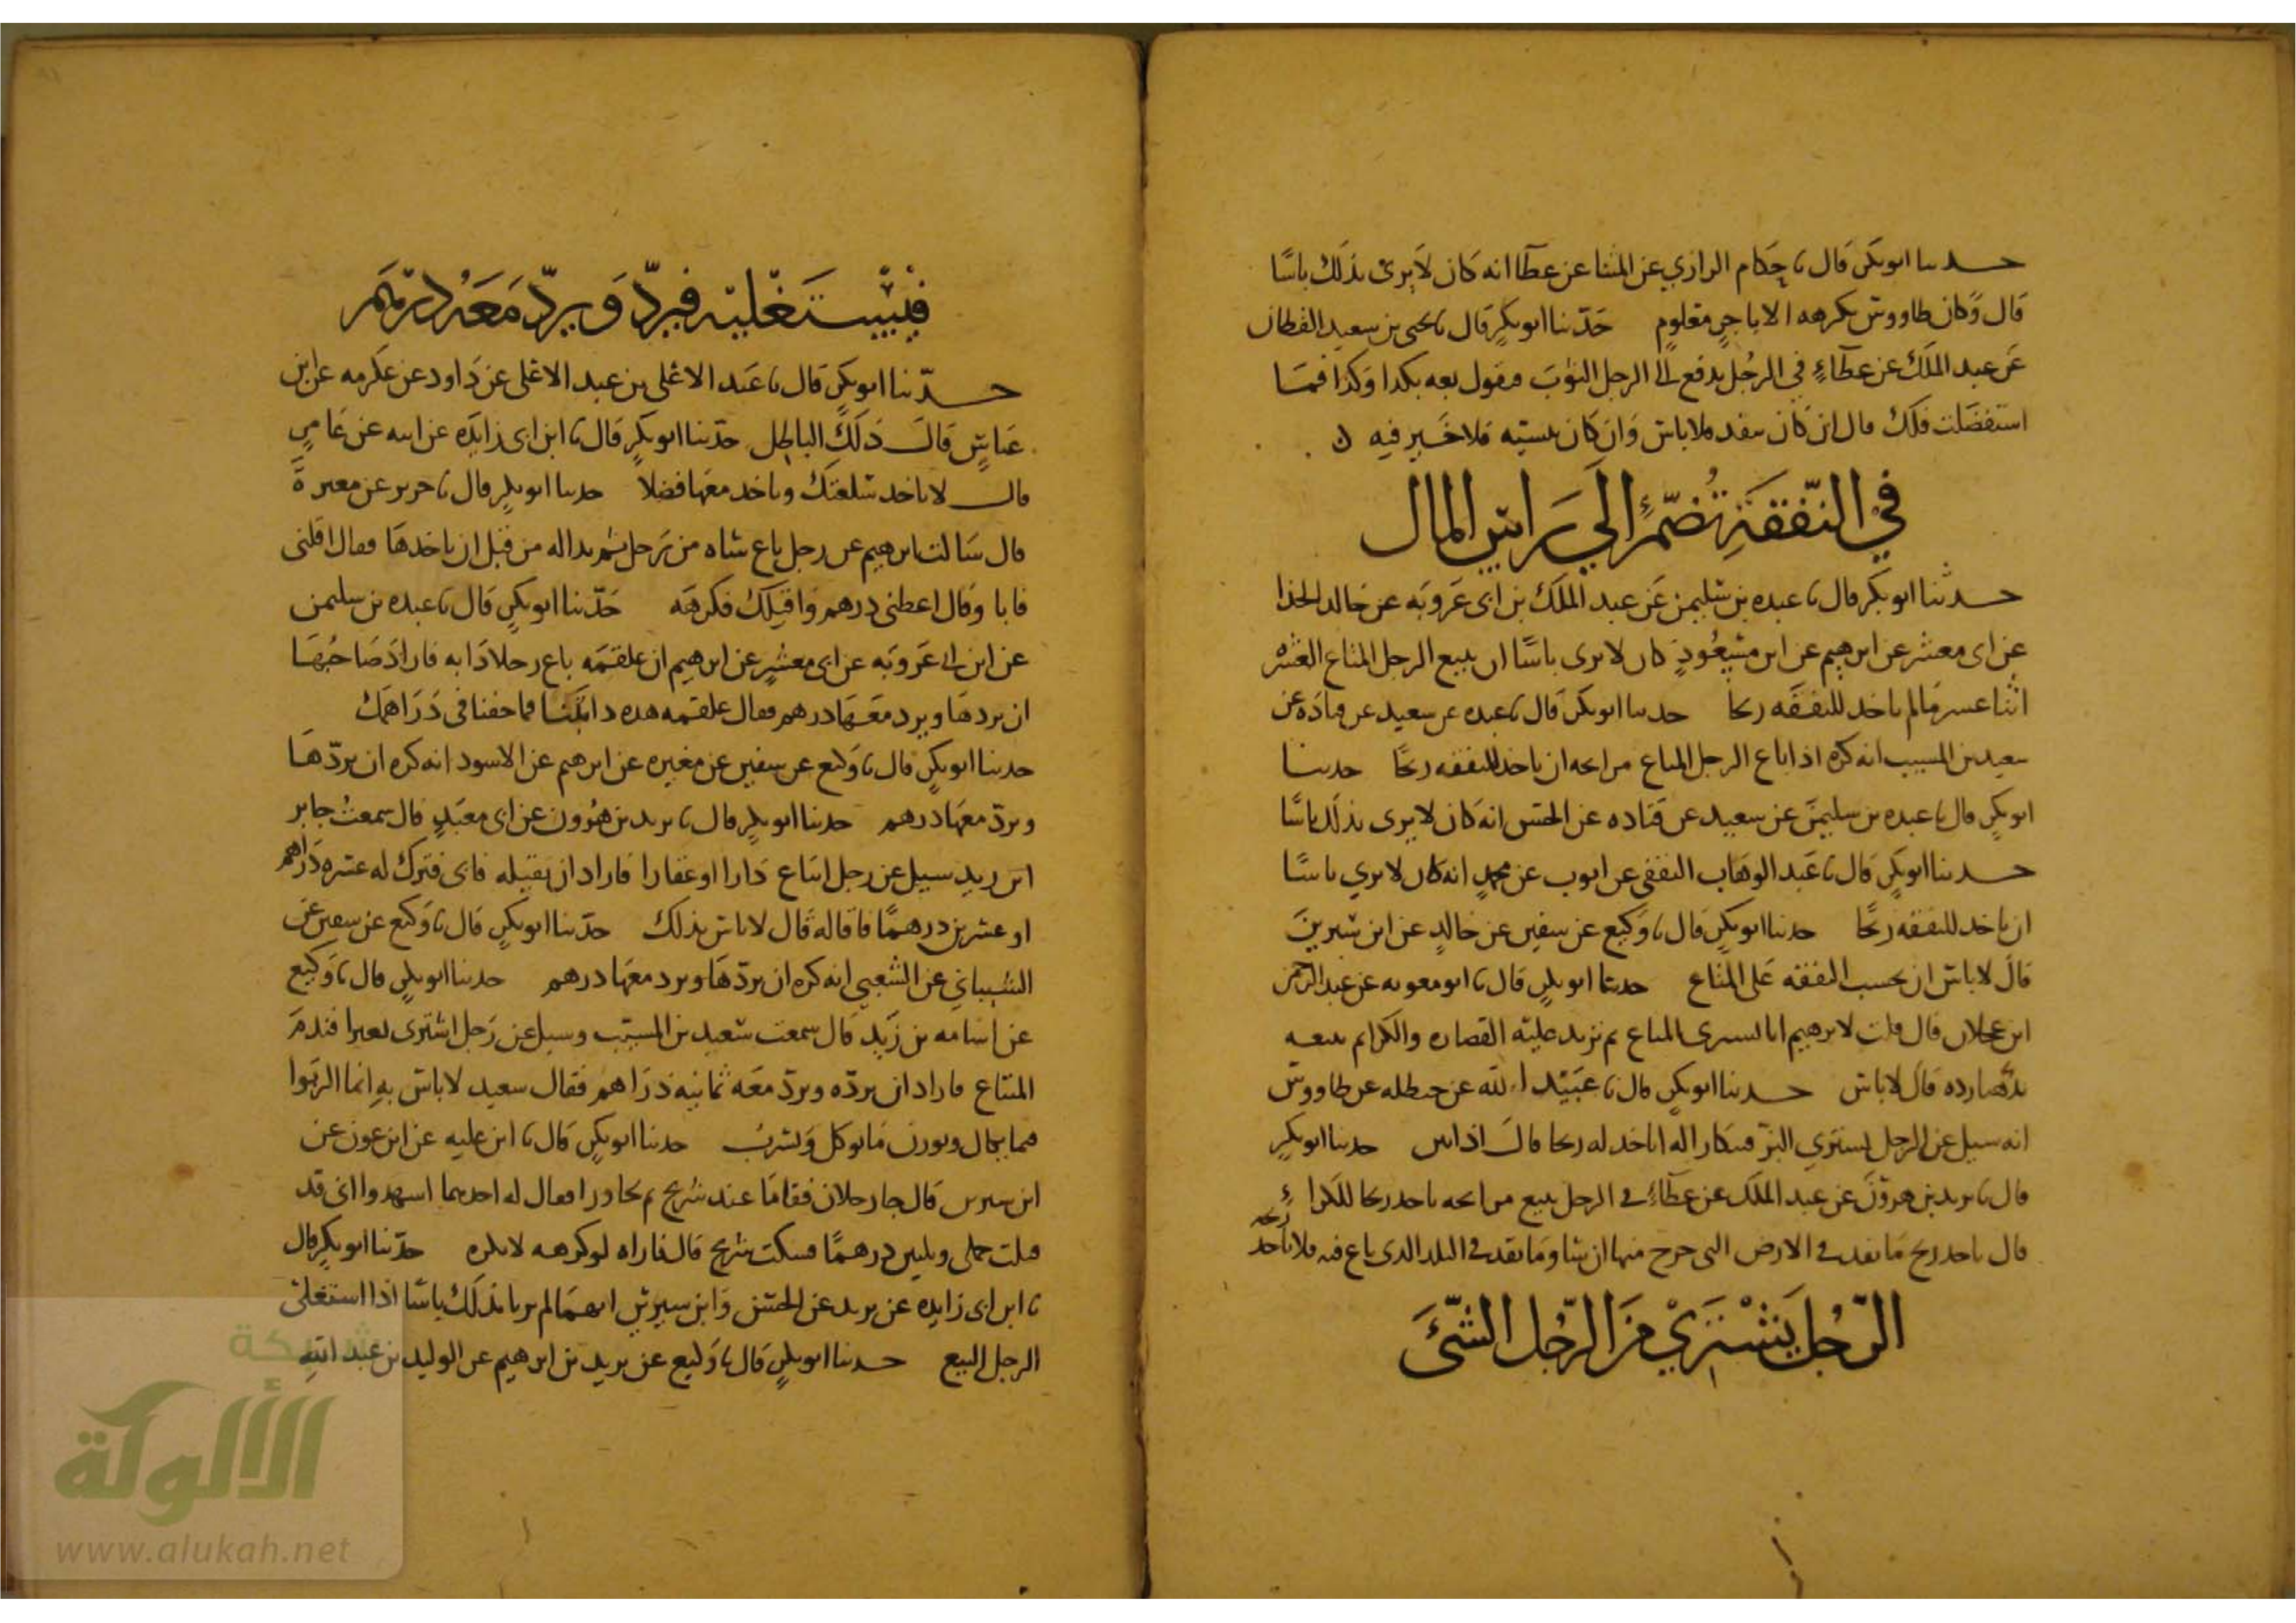 حدىىا ابو بكر قال نا حكام الرازي عن المثنا عن عطا انه كان لا يرى بذلك باسًا
قال وكان طاووس يكرهه الا باجرٍ معلومٍ حدّثنا ابو بكرٍ قال نا يحيى بن سعيد القطان
عن عبد الملك عن عطاءٍ في الرجُل يدفع الى الرجل الثوب فيقول بعه بكدا وكذا فما
استفضلت فلك قال ان كان بنقد فلا باس وان كان بنسيه فلا خير فيه ن
في النّفقة تُضمّ إلى راس المال
حدثنا ابو بكر قال نا عبده بن سليمن عن عبد الملك بن ابى عروبه عن خالد الحذا
عن ابى معشر عن ابرهيم عن ابن مسعُودٍ كان لا يرى باسًا ان يبيع الرجل المتاع العشره
اثنا عسر ما لم ياخد للنفقه ربحا حدىىا ابو بكر قال نا عبده عن سعيد عن قتاده عن
سعيد بن المسيب انه كره اذا باع الرجل المتاع مرابحه ان ياخد للنفقه ربحًا حدىنا
ابو بكرٍ قال نا عبده بن سليمن عن سعيد عن قتاده عن الحسن انه كان لا يرى بذلك باسًا
حدىنا ابو بكرٍ قال نا عبد الوهاب الثقفي عن ايوب عن محمدٍ انه كان لا يري باسًا
ان ياخد للنفقه ربحًا حدثنا ابو بكرٍ قال نا وكيع عن سفين عن خالدٍ عن ابن سيرين
قال لا باس ان يحسب النفقه على المتاع حدثنا ابو بكرٍ قال نا ابو معويه عن عبد الرحمن
ابن عجلان قال قلت لابرهيم انا نسترى المتاع ثم نزيد عليه القصاره والكرا ثم نبيعه
بدهيارده قال لا باس حدىنا ابو بكرٍ قال نا عبيد الله عن حنظله عن طاووس
انه سيل عن الرجل يستري البزّ فيتكارا له اياخد له ربحا قال اذا بين حدىنا ابو بكرٍ
قال نا يزيد بن هروْن عن عبد الملك عن عطاءٍ في الرجل يبيع مرابحه ياخد ربحا للكراءِ
قال ياخد ربح ما نقد في الارض التى خرج منها ان شا وما نقد في البلد الدى باع فيه فلا ياخد ربحه
الرّجُل يَشْتَرِيْ من الرّجُل الشّئ
فيستغليه فيردّ ويردّ معه درهم
حدّثنا ابو بكرٍ قال نا عبد الاعلى بن عبد الاعلى عن داود عن عكرمه عن ابن
عباسٍ قال ذلك الباطل حدّثنا ابو بكرٍ قال نا ابن ابى زايده عن ابيه عن عامرٍ
قال لا تاخد سلعتك وتاخد معها فضلا حدىنا ابو بكرٍ قال نا جرير عن مغيرة
قال سالت ابرهيم عن رجل باع شاه من رجل ثم بدا له من قبل ان ياخدها فقال اقلنى
فابا وقال اعطنى درهم واقيلك فكرهه حدّثنا ابو بكرٍ قال نا عبده بن سليمن
عن ابن ابى عروبه عن ابى معشرٍ عن ابرهيم ان علقمه باع رجلا دابه فاراد صاحبُها
ان يردها ويرد معها درهم فقال علقمه هده دابّتنا فما حقنا في دراهمك
حدىنا ابو بكرٍ قال نا وكيع عن سفين عن مغيره عن ابرهيم عن الاسود انه كره ان يردّها
ويردّ معها درهم حدىنا ابو بكرٍ قال نا يزيد بن هُرون عن ابى معبدٍ قال سمعتُ جابر
ابن زيد سيل عن رجل ابتاع دارا او عقارا فاراد ان يقيله فابى فترك له عشره دراهم
او عشرين درهمًا فاقاله قال لا باس بذلك حدّثنا ابو بكرٍ قال نا وكيع عن سفين عن
الشيباني عن الشعبي انه كره ان يردّها ويرد معها درهم حدىنا ابو بكرٍ قال نا وكيع
عن اسامه بن زيد قال سمعت سعيد بن المسيّب وسيل عن رجل اشترى بعيرا فندم
المبتاع فاراد ان يردّه ويردّ معه ثمانيه دراهم فقال سعيد لا باس به انما الربوا
فيما يكال ويوزن مما يوكل ويشرب حدىنا ابو بكرٍ قال نا ابن عليه عن ابن عون عن
ابن سيرين قال جا رجلان فقاما عند شريح ثم تحاورا فقال له احدهما اسهدوا انى قد
قبلت جملى وثلثين درهمًا فسكت شريح قال فاراه لو كرهه لانكره حدّثنا ابو بكرٍ قال
نا ابن ابى زايده عن يزيد عن الحسن وابن سيرين انهما لم يريا بذلك باسًا اذا استغلى
الرجل البيع حدىنا ابو بكرٍ قال نا وكيع عن يزيد بن ابرهيم عن الوليد بن عبد الله
شبكة
الألوكة
www.alukah.net